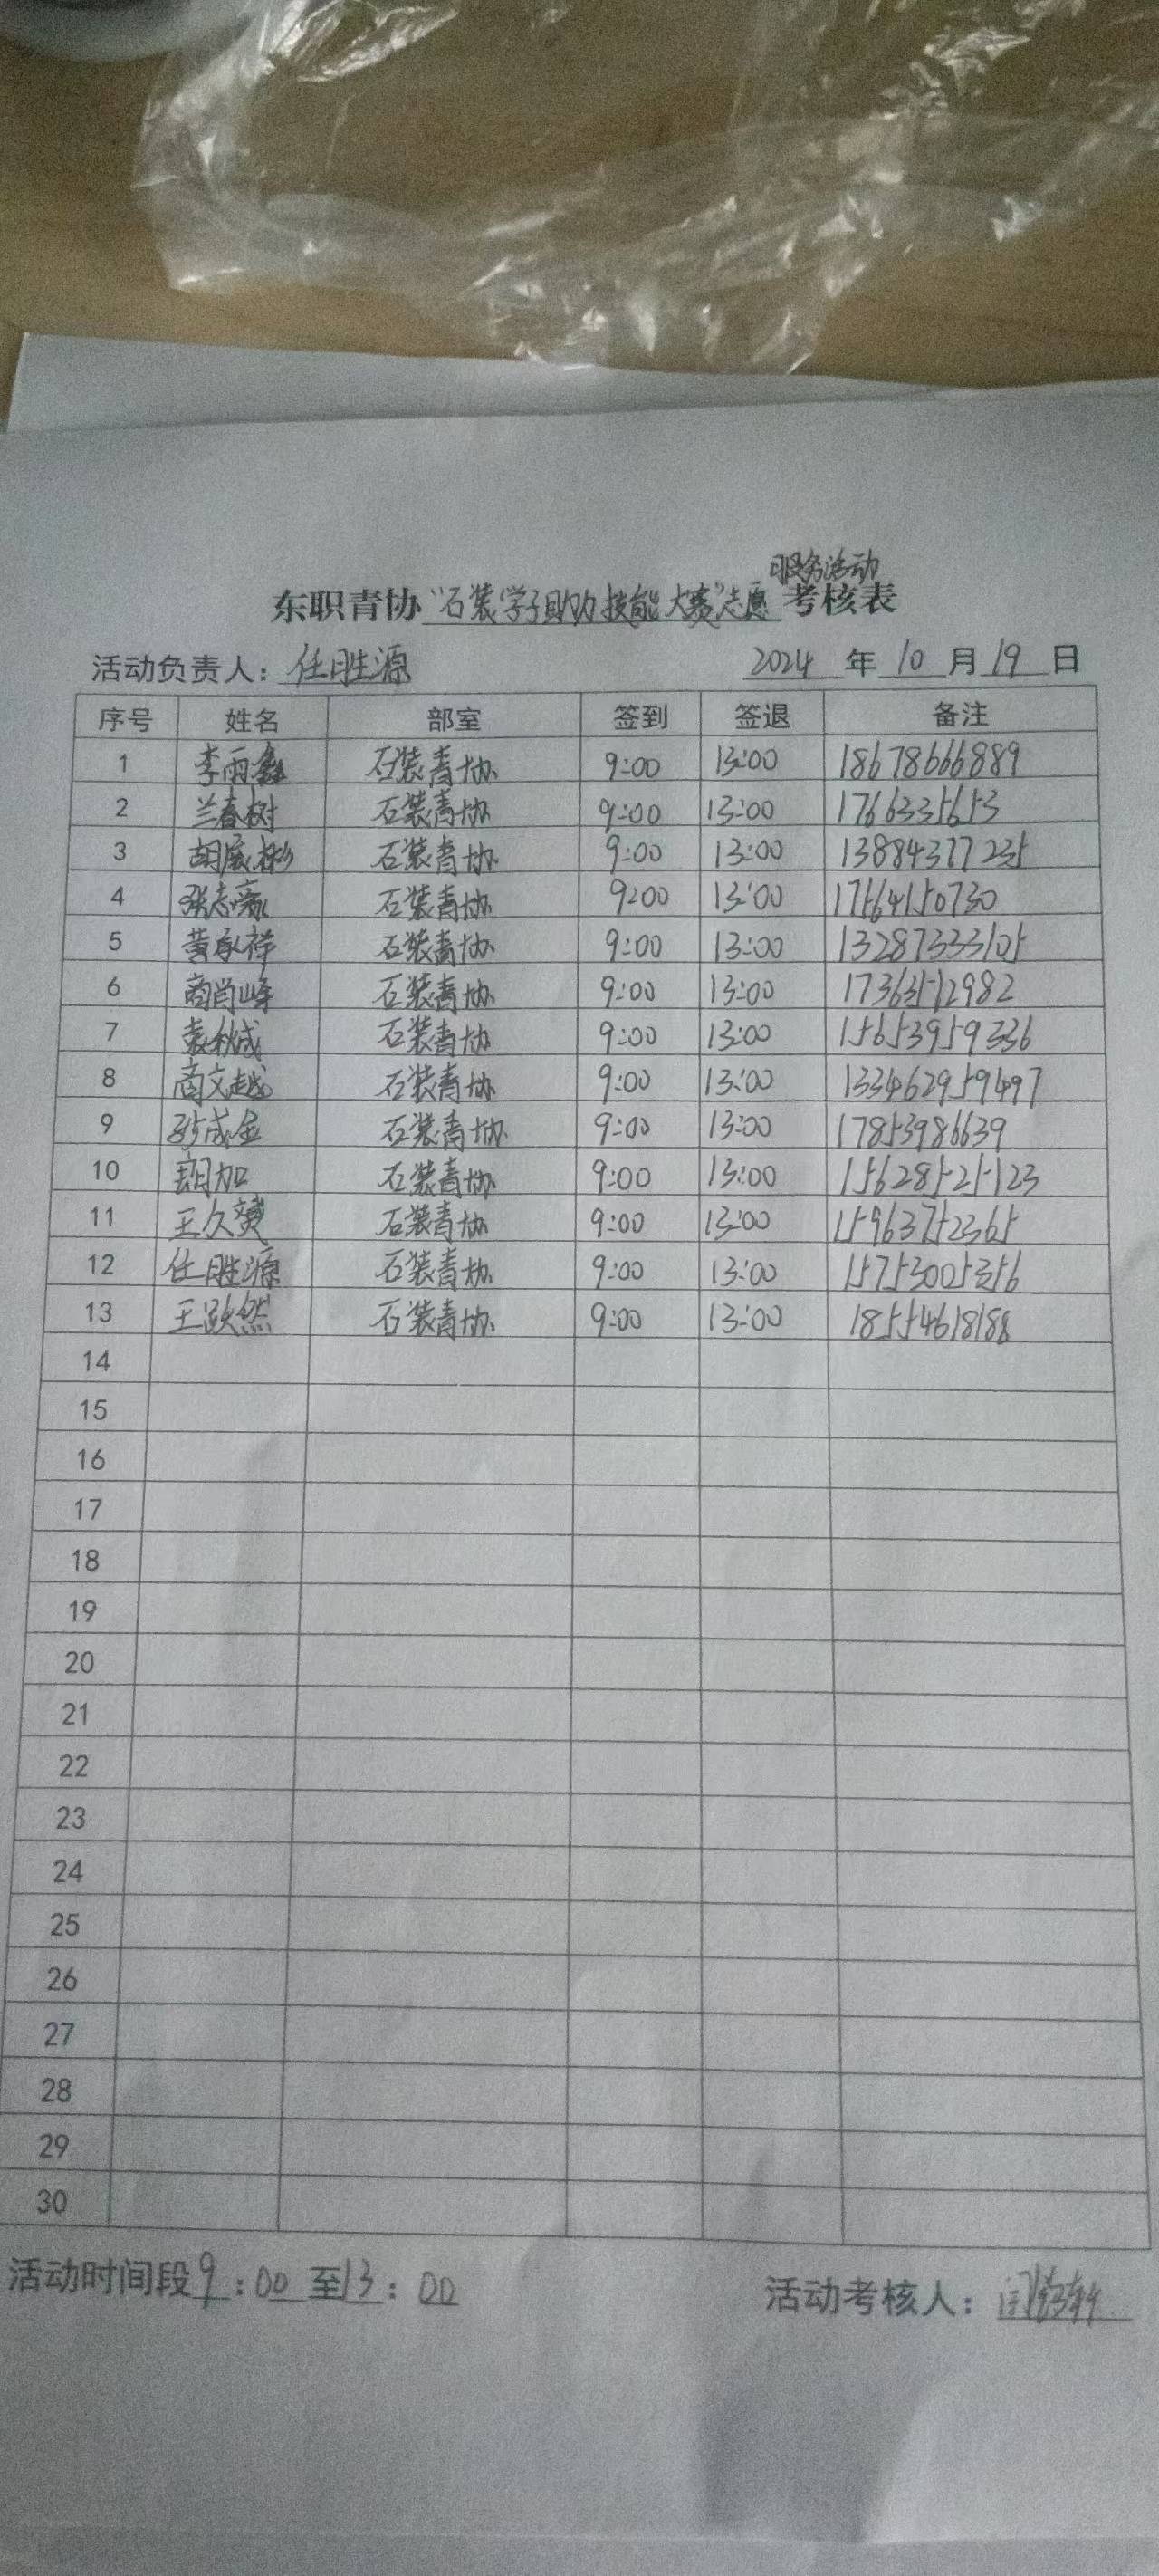 服务活动
东职青协“石装学子助力技能大赛”志愿考核表
活动负责人：任胜源 2024 年 10 月 19 日
序号 姓名 部室 签到 签退 备注
1 李雨鑫 石装青协 9:00 13:00 18678666889
2 兰春树 石装青协 9:00 13:00 17663356153
3 胡展彬 石装青协 9:00 13:00 13884377235
4 石装青协 9:00 13:00 17564150730
5 黄承祥 石装青协 9:00 13:00 13287333105
6 商尚峰 石装青协 9:00 13:00
7 袁秋成 石装青协 9:00 13:00 15653959336
8 商文越 石装青协 9:00 13:00 133462959497
9 石装青协 9:00 13:00 17853986639
10 石装青协 9:00 13:00 15628525123
11 王久赟 石装青协 9:00 13:00 15963752365
12 任胜源 石装青协 9:00 13:00 15753005356
13 王跃然 石装青协 9:00 13:00 18554618188
14
15
16
17
18
19
20
21
22
23
24
25
26
27
28
29
30
活动时间段 9:00 至 13:00 活动考核人：